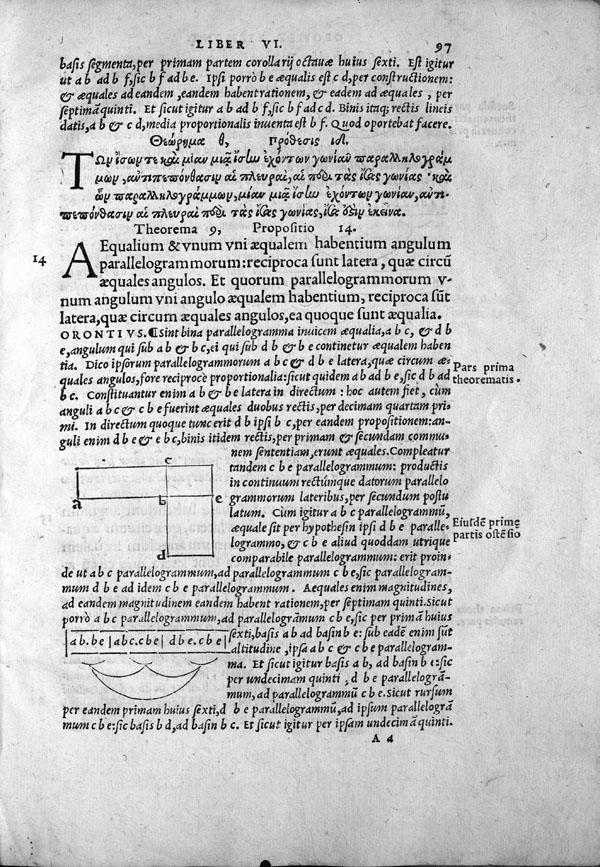 LIBER VI. 97
basis segmenta, per primam partem corollarij octauæ huius sexti. Est igitur
ut a b ad b f, sic b f ad b e. Ipsi porrò b e æqualis est c d, per constructionem:
& æquales ad eandem, eandem habent rationem, & eadem ad æquales, per
septimã quinti. Et sicut igitur a b ad b f, sic b f ad c d. Binis itaq; rectis lineis
datis, a b & c d, media proportionalis inuenta est b f. Quod oportebat facere.
Θεώρημα θ, Πρόθεσις ιδ.
Τῶν ἴσων τε καὶ μίαν μιᾷ ἴσην ἐχόντων γωνίαν παραλληλογράμ
μων, ἀντιπεπόνθασιν αἱ πλευραὶ, αἱ περὶ τὰς ἴσας γωνίας· καὶ
ὧν παραλληλογράμμων, μίαν μιᾷ ἴσην ἐχόντων γωνίαν, ἀντι-
πεπόνθασιν αἱ πλευραὶ αἱ περὶ τὰς ἴσας γωνίας, ἴσα ἐστὶν ἐκεῖνα.
Theorema 9, Propositio 14.
14 AEqualium & vnum vni æqualem habentium angulum
parallelogrammorum: reciproca sunt latera, quæ circũ
æquales angulos. Et quorum parallelogrammorum v-
num angulum vni angulo æqualem habentium, reciproca sũt
latera, quæ circum æquales angulos, ea quoque sunt æqualia.
ORONTIVS. ¶Sint bina parallelogramma inuicem æqualia, a b c, & d b
e, angulum qui sub a b & b c, ei qui sub d b & b e continetur æqualem haben
tia. Dico ipsorum parallelogrammorum a b c & d b e latera, quæ circum æ-
quales angulos, fore reciprocè proportionalia: sicut quidem a b ad b e, sic d b ad
b c. Constituantur enim a b & b e latera in directum: hoc autem fiet, cùm
anguli a b c & c b e fuerint æquales duobus rectis, per decimam quartam pri
mi. In directum quoque tunc erit d b ipsi b c, per eandem propositionem: an-
guli enim d b e & e b c, binis itidem rectis, per primam & secundam commu
Pars prima
theorematis.
nem sententiam, erunt æquales. Compleatur
tandem c b e parallelogrammum: productis
in continuum rectúmque datorum parallelo
grammorum lateribus, per secundum postu
latum. Cùm igitur a b c parallelogrammũ,
æquale sit per hypothesin ipsi d b e paralle-
logrammo, & c b e aliud quoddam utrique
comparabile parallelogrammum: erit proin-
Eiusdẽ prime
partis ostẽsio
c
a
b
e
d
de ut a b c parallelogrammum, ad parallelogrammum c b e, sic parallelogram-
mum d b e ad idem c b e parallelogrammum. Aequales enim magnitudines,
ad eandem magnitudinem eandem habent rationem, per septimam quinti. Sicut
porrò a b c parallelogrammum, ad parallelogrãmum c b e, sic per primã huius
sexti, basis a b ad basin b e: sub eadẽ enim sũt
altitudine, ipsa a b c & c b e parallelogram-
ma. Et sicut igitur basis a b, ad basin b e: sic
per undecimam quinti, d b e parallelogrã-
mum, ad parallelogrammũ c b e. Sicut rursum
a b. b e | a b c. c b e | d b e. c b e
per eandem primam huius sexti, d b e parallelogrammũ, ad ipsum parallelogrã
mum c b e: sic basis b d, ad basin b c. Et sicut igitur per ipsam undecimã quinti.
A 4